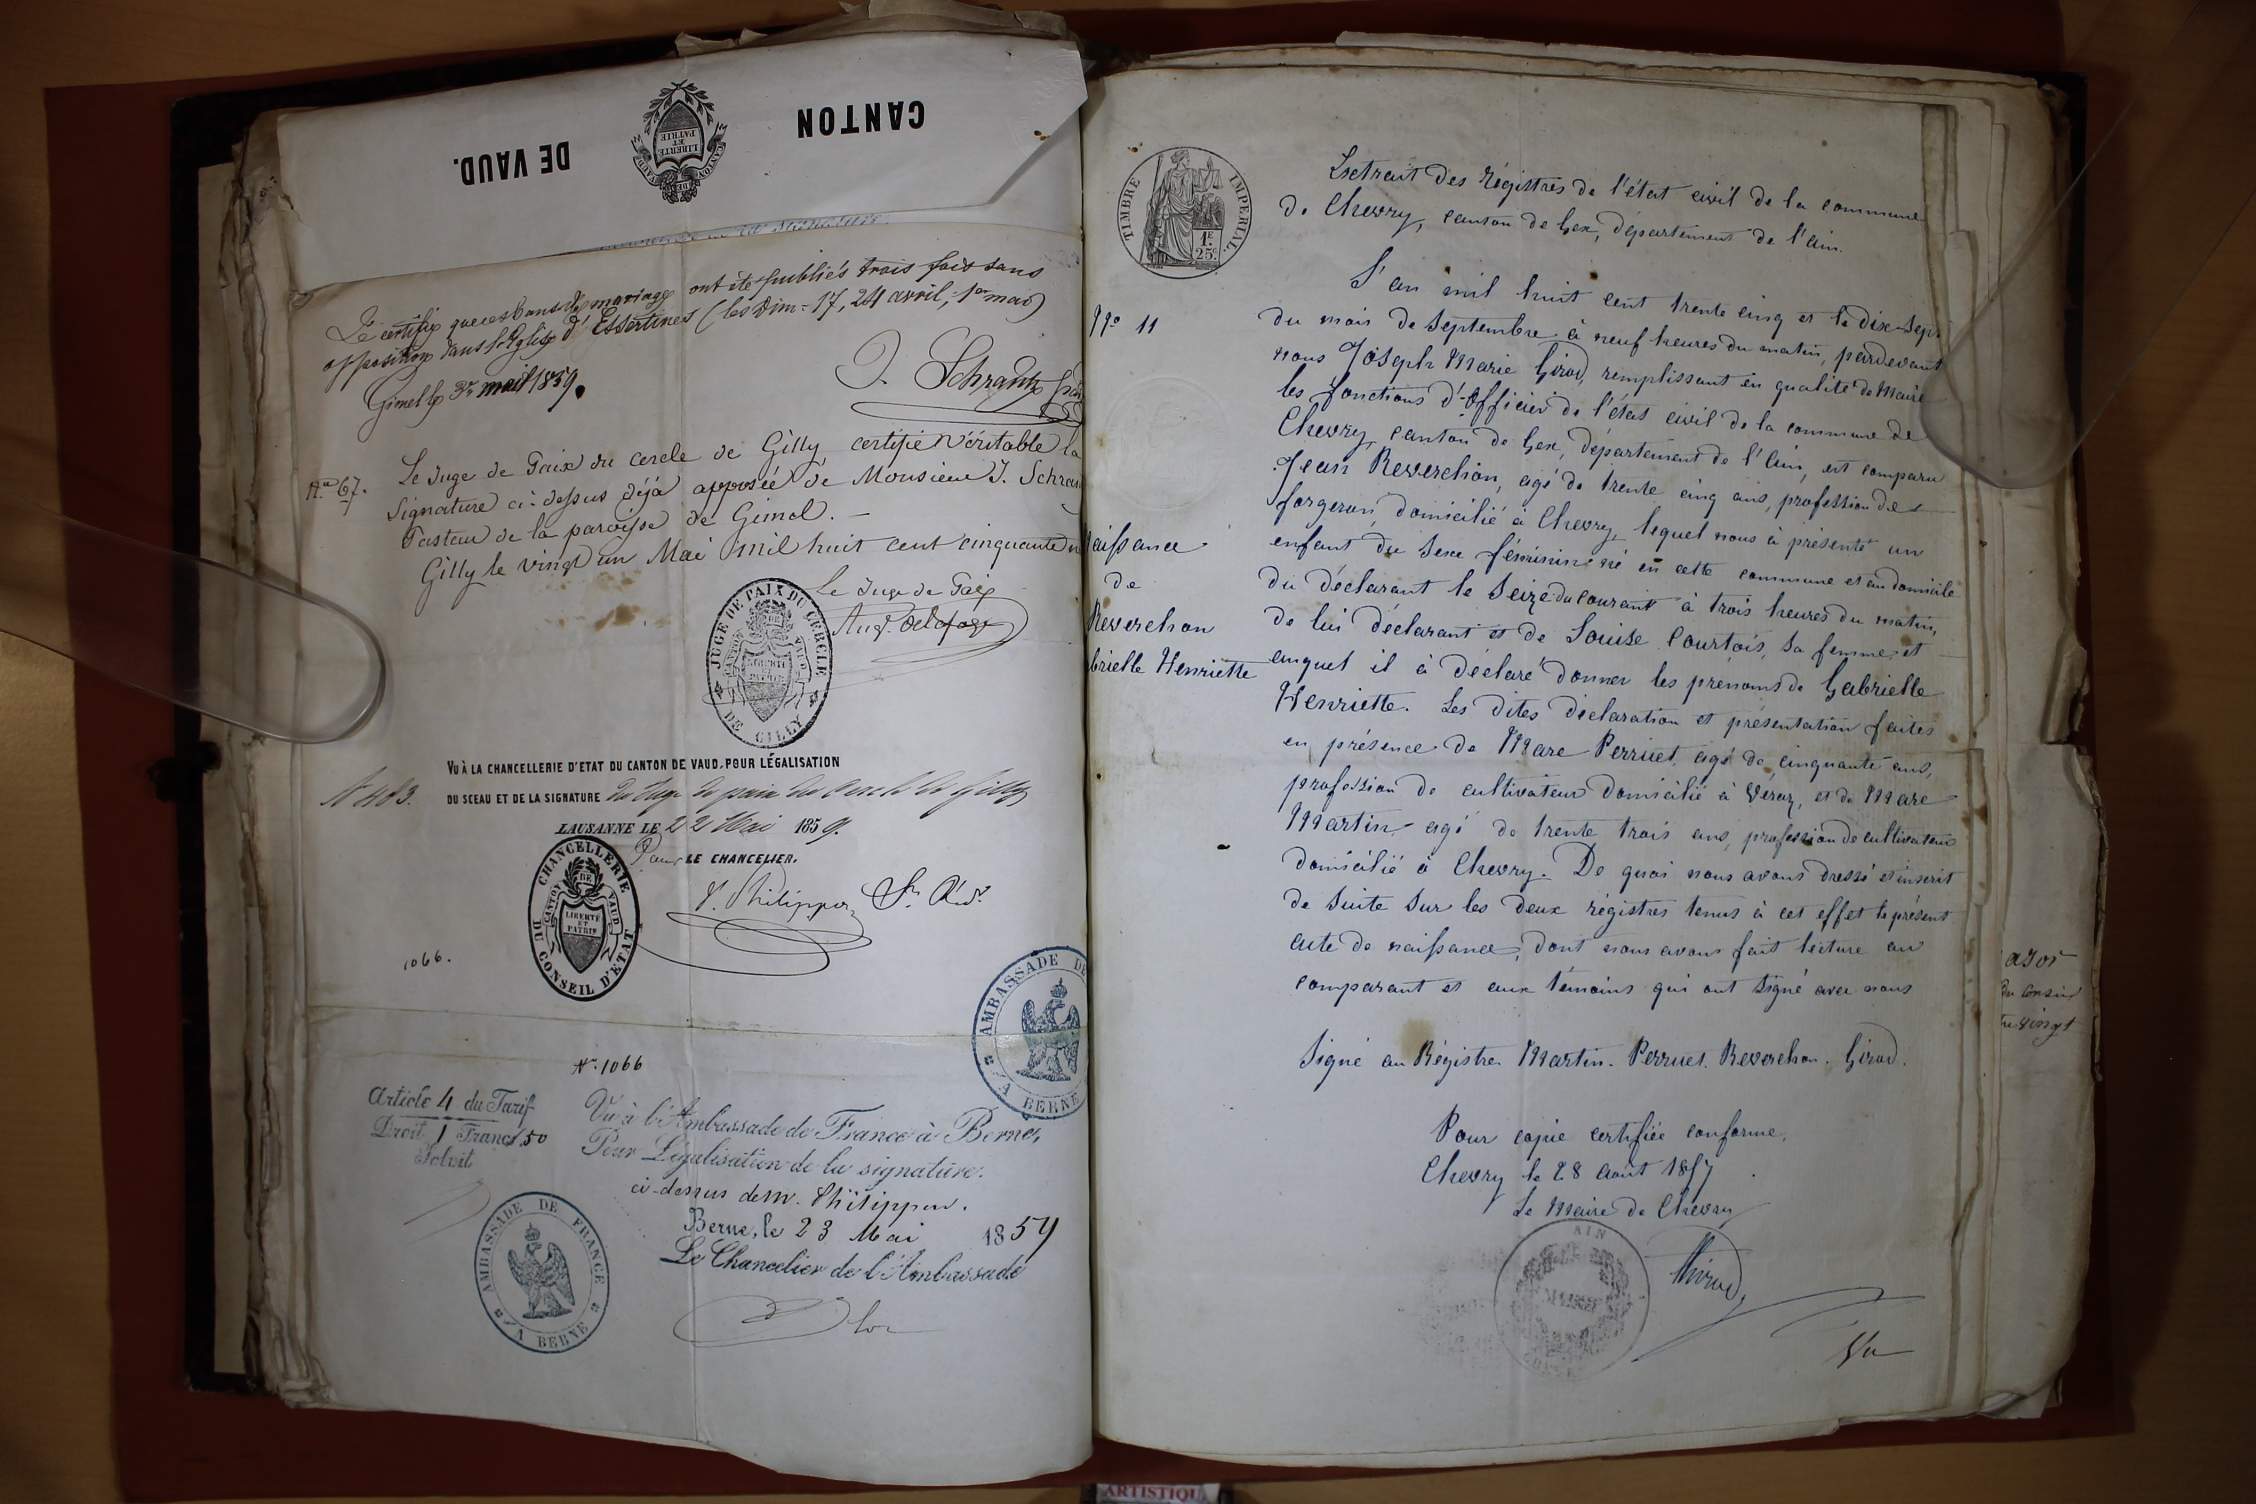 CANTON
DE VAUD.
LIBERTÉ
ET
PATRIE
CANTON DE VAUD
Je certifie que ces bans de mariage ont été publiés trois fois sans
opposition dans l'Eglise d'Essertines (les Dim = 17, 24 avril, 1er mai)
Gimel le 3e mai 1859.
J. Schrantz
No 67.
Le Juge de Paix du cercle de Gilly certifie véritable la
signature ci-dessus déjà apposée de Monsieur J. Schran
Pasteur de la paroisse de Gimel. —
Gilly le vingt un Mai mil huit cent cinquante n
Le Juge de Paix
Aug. Delafoge
JUGE DE PAIX DU CERCLE
DE GILLY
CANTON DE VAUD
LIBERTÉ
ET
PATRIE
VU À LA CHANCELLERIE D'ETAT DU CANTON DE VAUD, POUR LÉGALISATION
N 483.
DU SCEAU ET DE LA SIGNATURE du Juge de paix du Cercle de Gilly
LAUSANNE LE 22 Mai 1859.
Pour LE CHANCELIER.
V. Philippon
CHANCELLERIE
DU CONSEIL D'ETAT
CANTON DE VAUD
LIBERTÉ
ET
PATRIE
1066.
AMBASSADE DE
A BERNE
No. 1066
Article 4 du Tarif
Droit 1 Francs 50
Solvit
Vu à l'Ambassade de France à Berne,
Pour Légalisation de la signature.
ci-dessus de M. Philippon.
Berne, le 23 Mai 1859
Le Chancelier de l'Ambassade
AMBASSADE DE FRANCE
A BERNE
TIMBRE IMPERIAL.
1F.
25c.
Extrait des régistres de l'état civil de la commune
de Chevry, canton de Gex, département de l'ain.
No 11
L'an mil huit cent trente cinq et le dix-sept
du mois de Septembre à neuf heures du matin, pardevant
nous Joseph Marie Girod, remplissant en qualité de Maire
les fonctions d'Officier de l'état civil de la commune de
Chevry, canton de Gex, département de l'Ain, est comparu
Jean Reverchon, agé de trente cinq ans, profession de
forgeron, domicilié à Chevry, lequel nous à présenté un
enfant du sexe féminin né en cette commune et au domicile
du déclarant le Seize du courant à trois heures du matin,
de lui déclarant et de Louise Courtois, sa femme et
auquel il à déclaré donner les prénoms de Gabrielle
Henriette. Les dites déclaration et présentation faites
en présence de Marc Perruet, agé de cinquante ans,
profession de cultivateur domicilié à Véraz, et de Marc
Martin agé de trente trois ans, profession de cultivateur
domicilié à Chevry. De quoi nous avons dressé et inscrit
de suite sur les deux régistres tenus à cet effet le présent
acte de naissance, dont nous avons fait lecture au
comparant et aux témoins qui ont signé avec nous
aissance
de
Reverchon
brielle Henriette
Signé au Régistre Martin. Perruet. Reverchon. Girod.
Pour copie certifiée conforme,
Chevry le 28 août 1857
Le Maire de Chevry
Girod
AIN
MAIRIE
Vu
ARTISTIQU